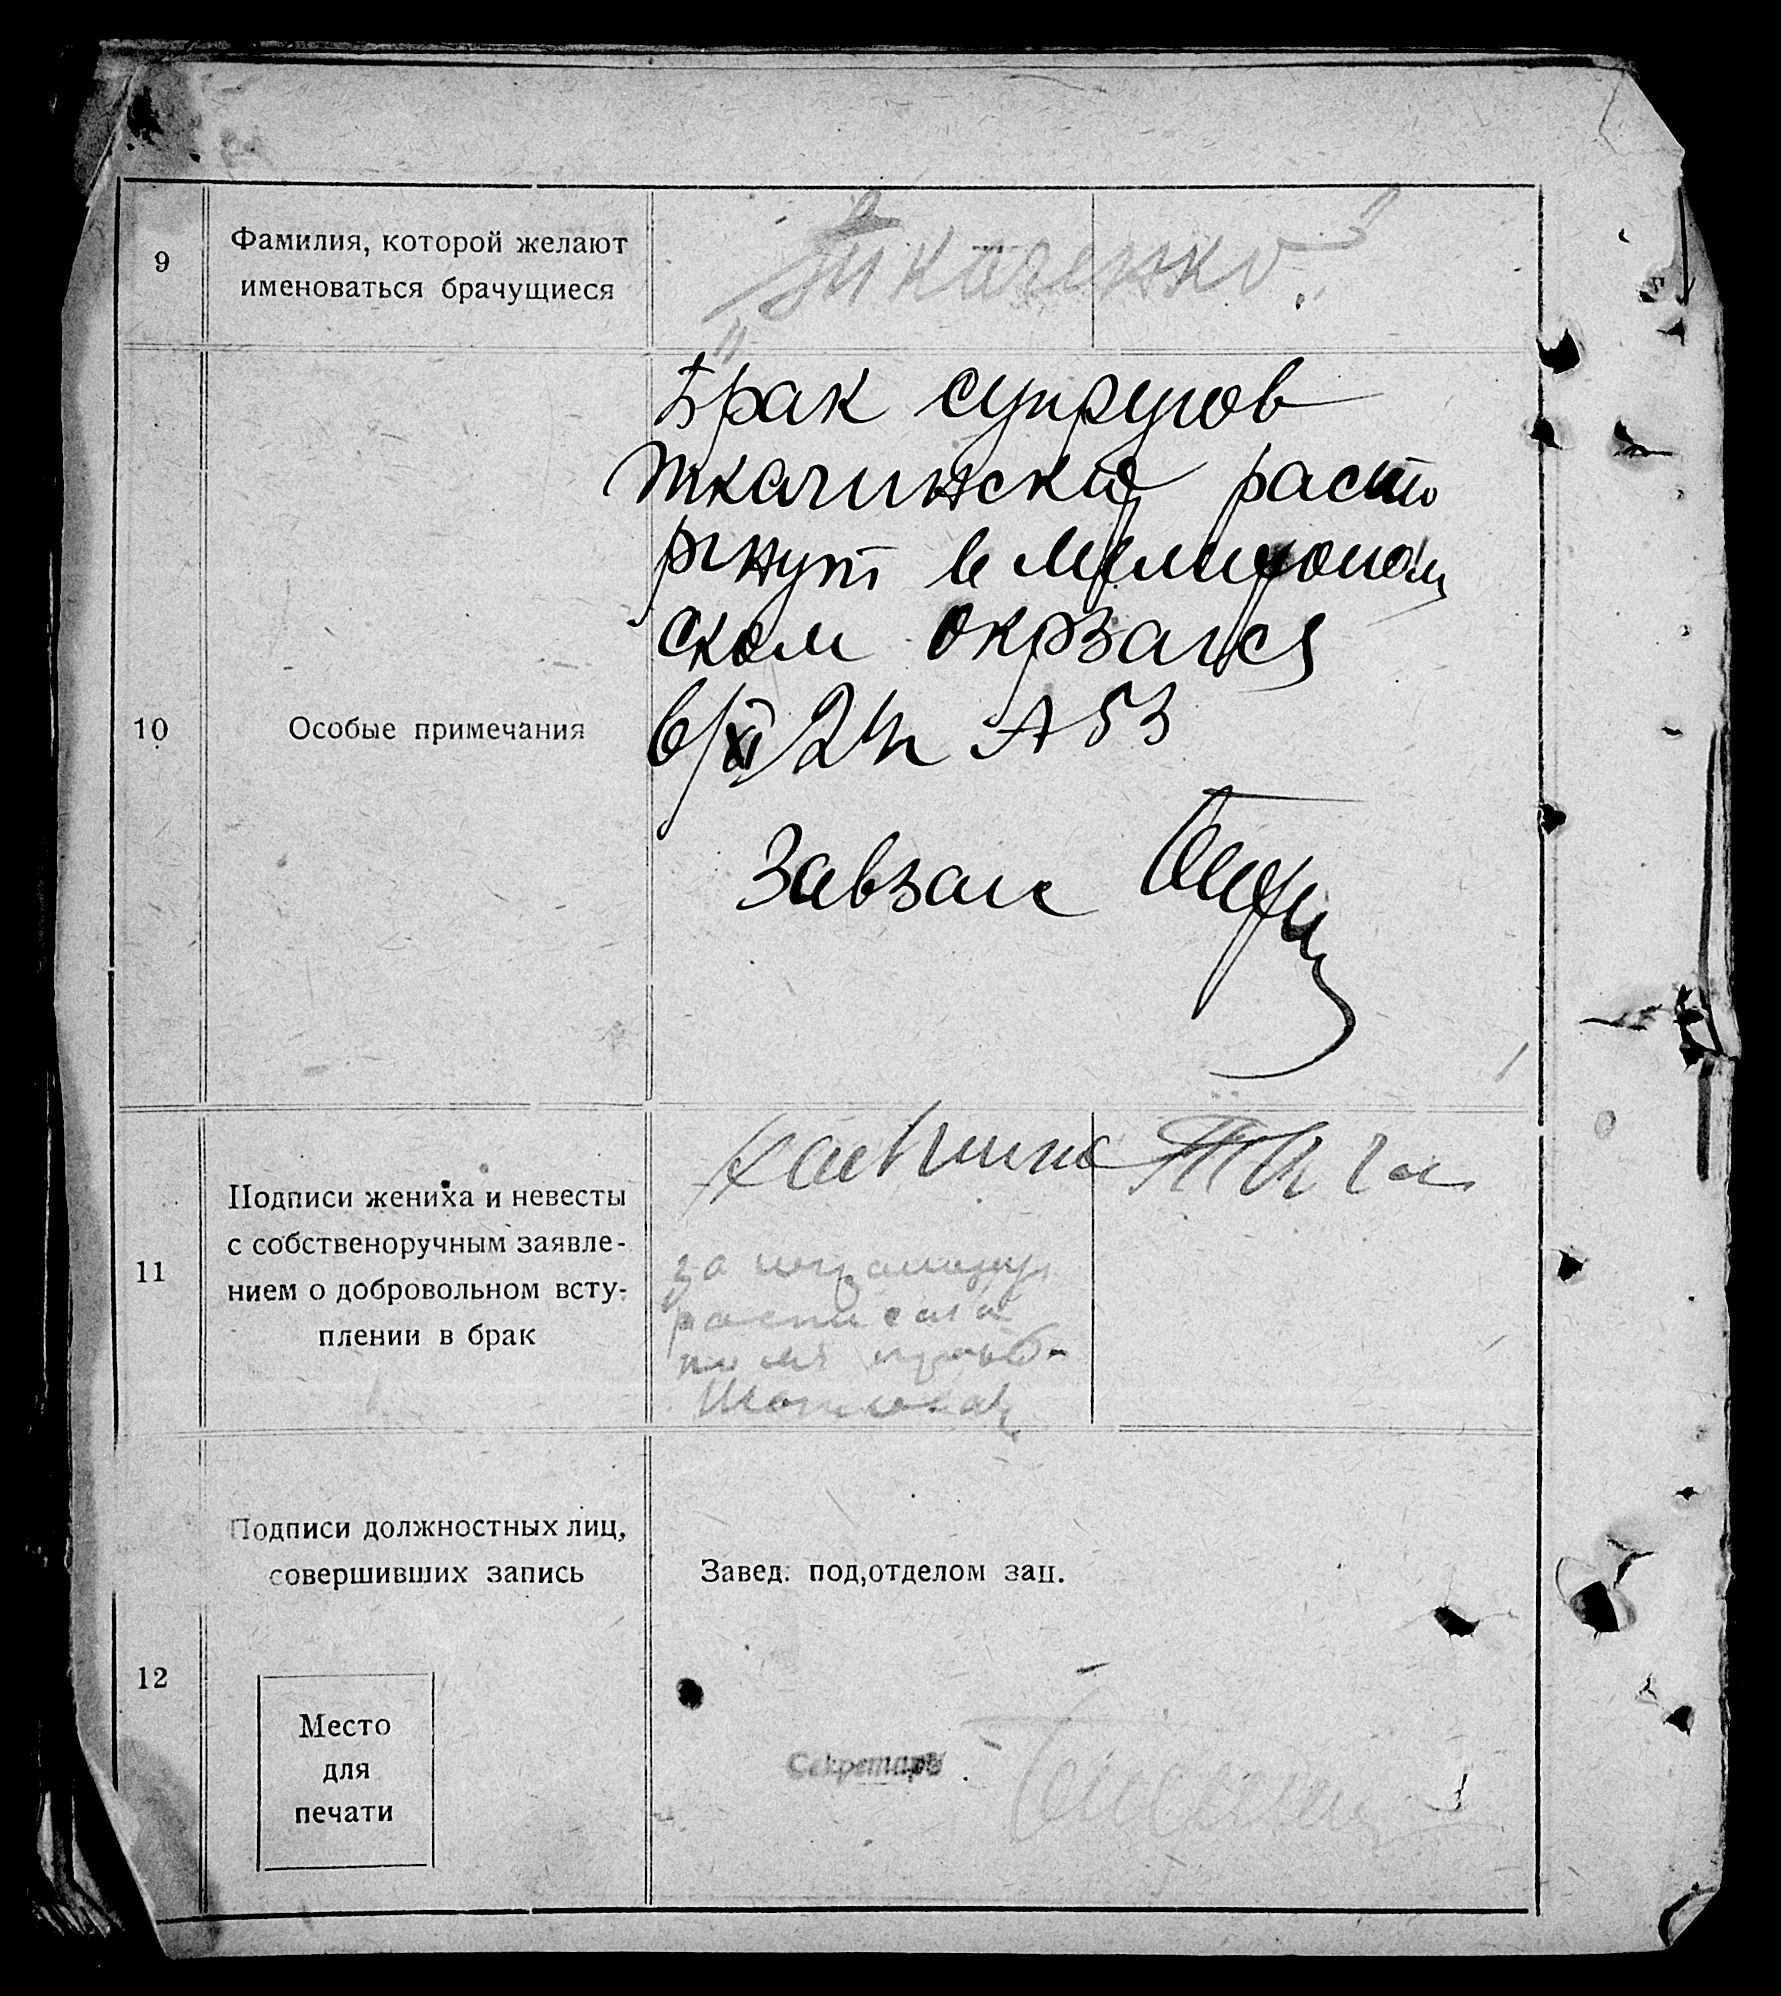 9
Фамилия, которой желают
именоваться брачущиеся
"Ткаченко"
10
Особые примечания
Брак супругов
расто
ргнут в Мелитополь
ском окрзагсе
6/XI 24 г № 53
Завзагс
11
Подписи жениха и невесты
с собственоручным заявле-
нием о добровольном всту-
плении в брак
за неграмотную
расписался
12
Подписи должностных лиц,
совершивших запись
Завед. под,отделом зап.
Секретарь
Место
для
печати